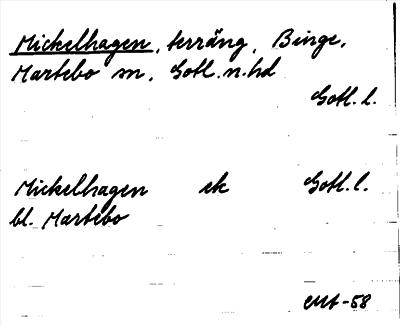 Mickelhagen, terräng, Binge,
Martebo sn, Gotl. n. hd
Gotl. l.
Mickelhagen ek Gotl. l.
bl. Martebo
-58